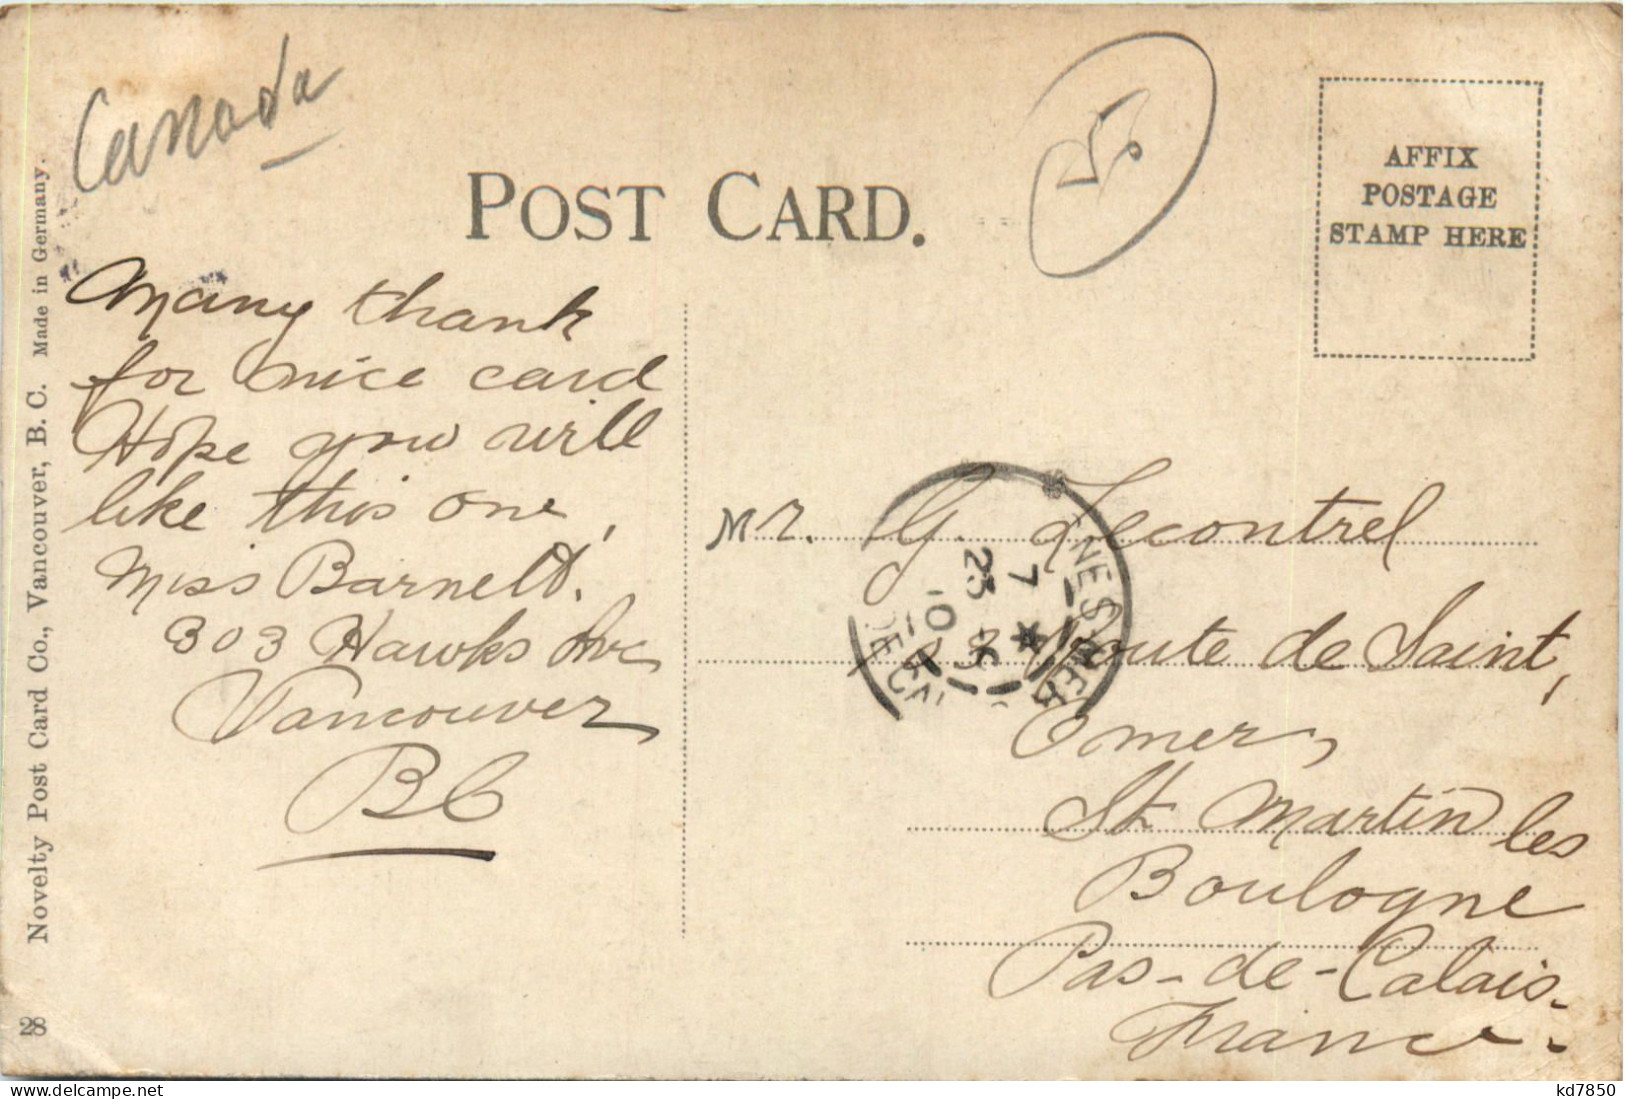 Canada
POST CARD.
AFFIX
POSTAGE
STAMP HERE
Many thank
for nice card
Hope you will
like this one,
Miss Barnett.
303 Hawks Ave
Vancouver
BC
Mr. G. Lecontrel
Route de Saint,
Omer,
St Martin les
Boulogne
Pas-de-Calais-
France-
7
23
10
Novelty Post Card Co., Vancouver, B. C. Made in Germany.
28
kd7850